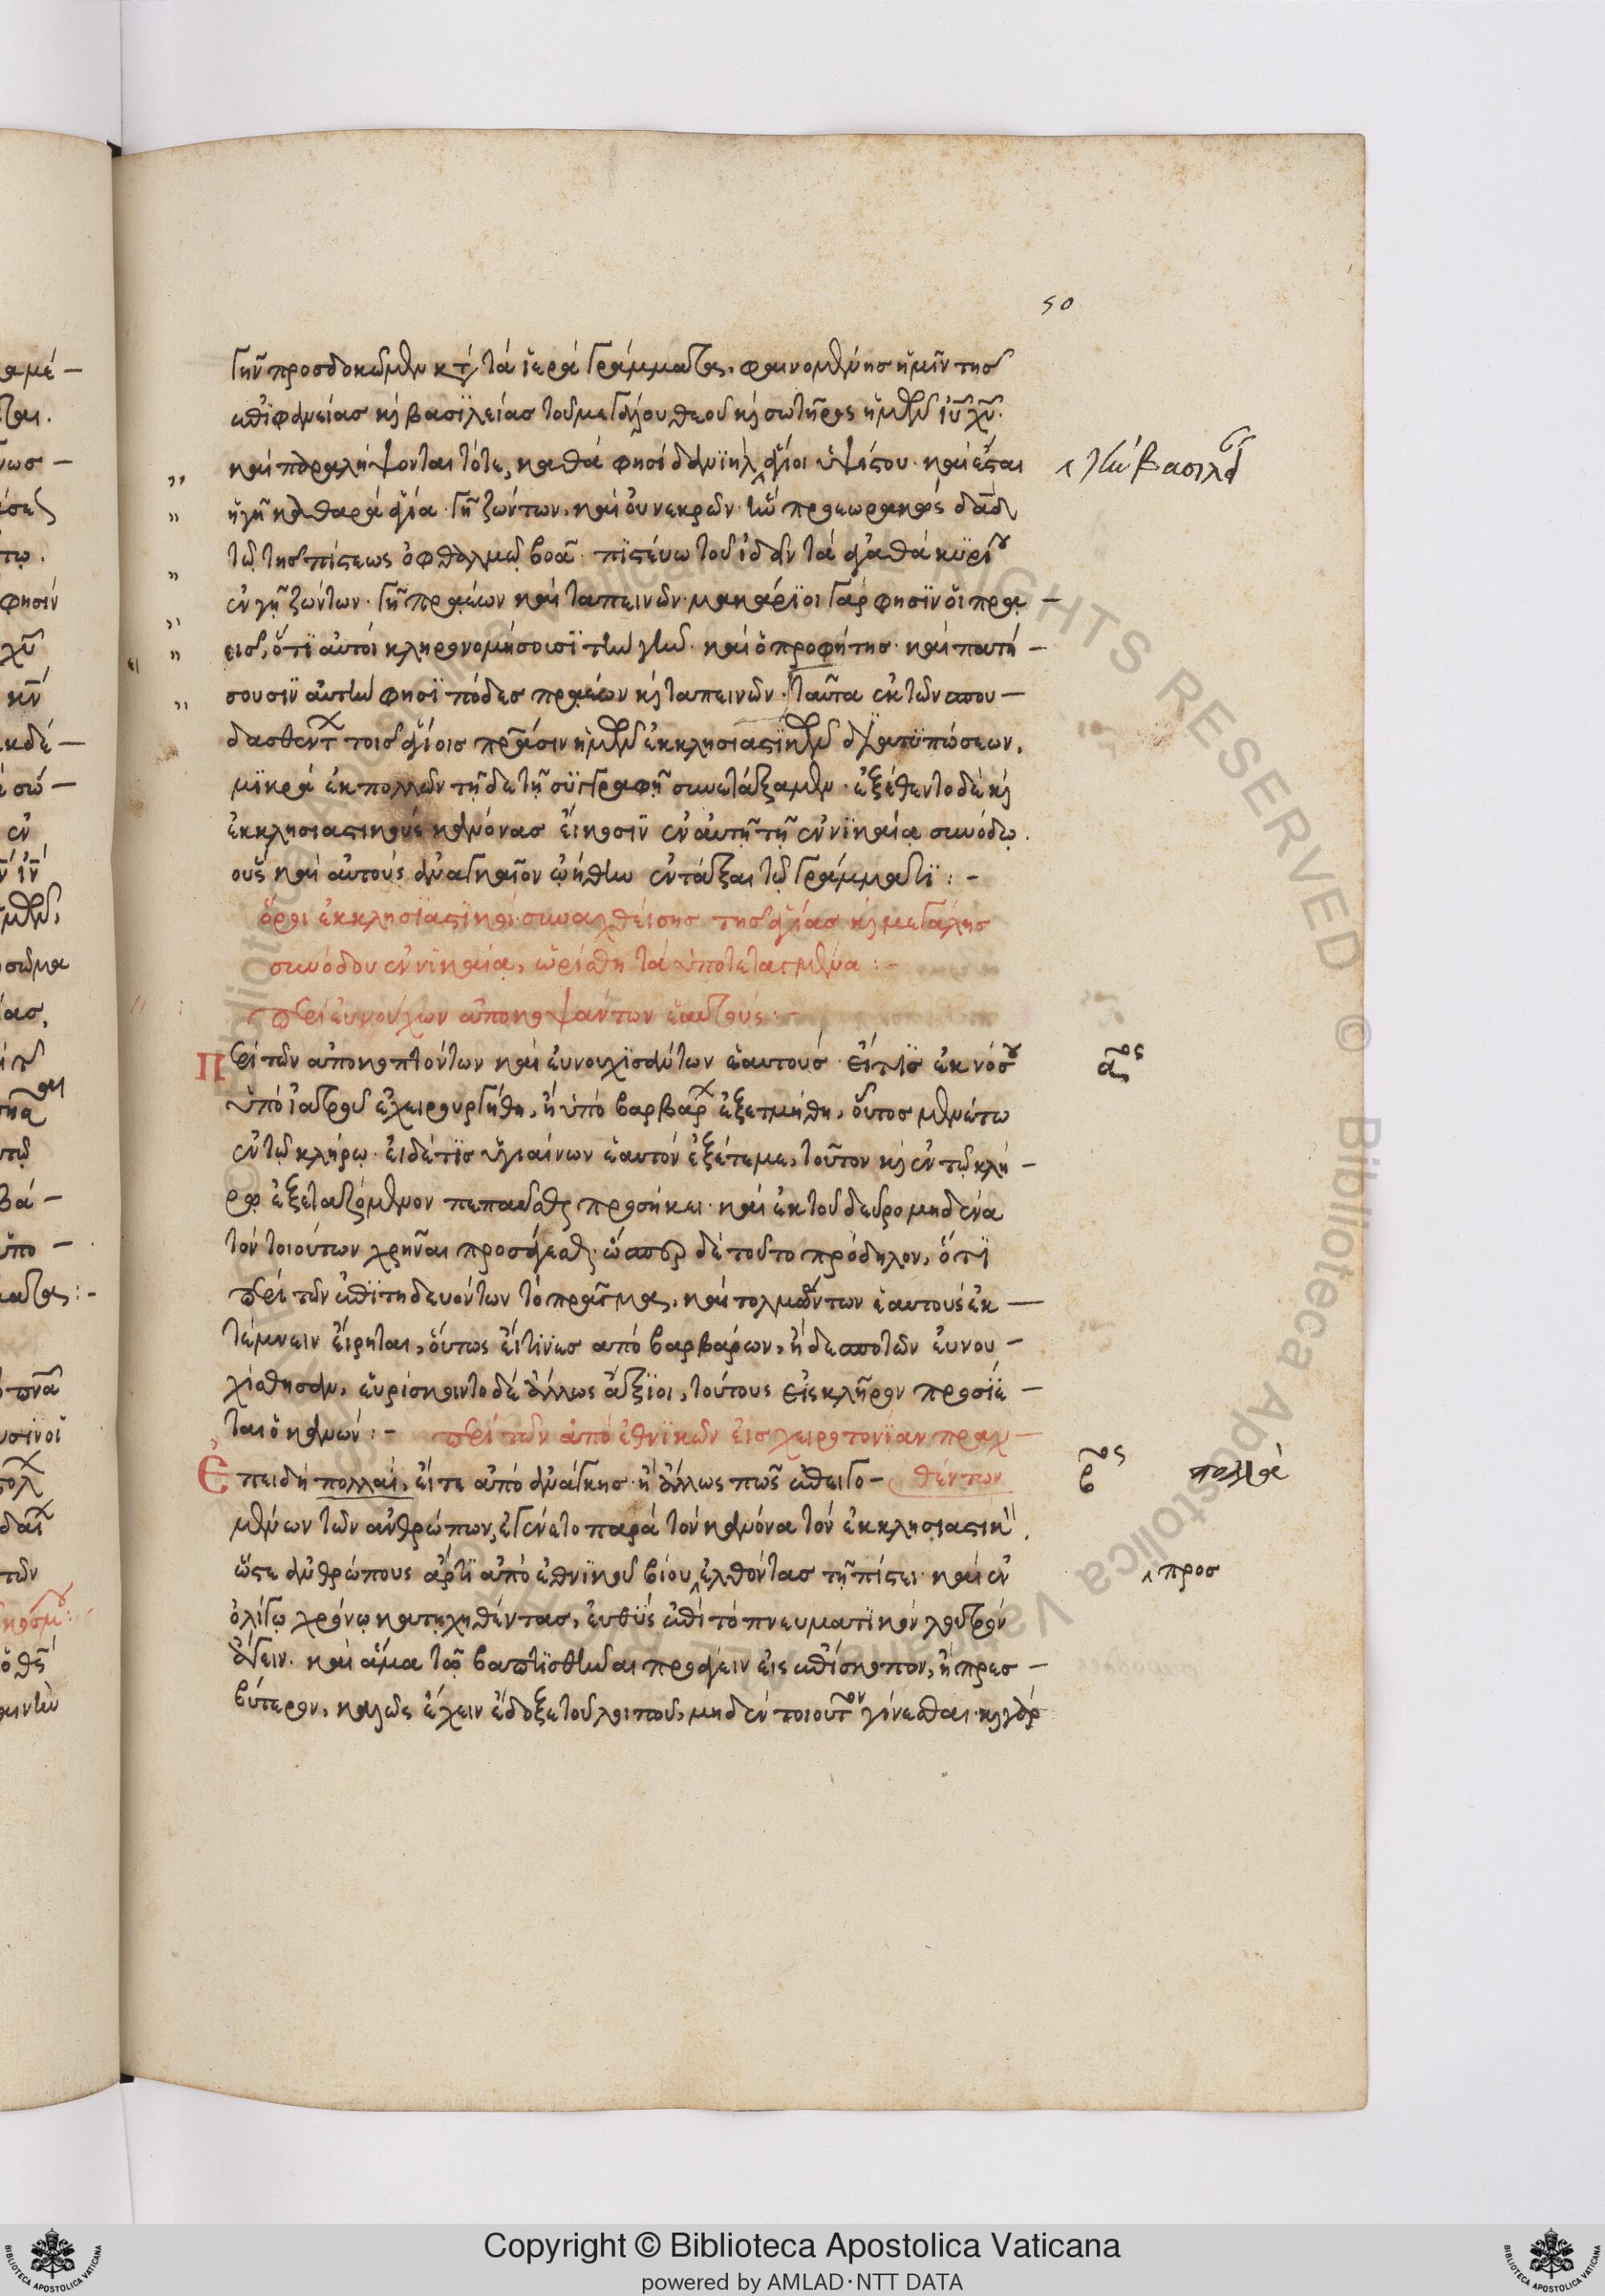 50
γῆν προσδοκῶμεν κατὰ τὰ ἱερὰ γράμματα, φαινομένης ἡμῖν τῆς
ἐπιφανείας καὶ βασιλείας τοῦ μεγάλου θεοῦ καὶ σωτῆρος ἡμῶν ἰυ χυ.
καὶ παραλήψονται τότε, καθά φησι δανιὴλ ἅγιοι ὑψίστου. καὶ ἔσται
τὴν βασιλείαν
ἡ γῆ καθαρὰ ἁγία. γῆ ζώντων, καὶ οὐ νεκρῶν. ἣν προεωρακὼς δαδ
τῷ τῆς πίστεως ὀφθαλμῷ βοᾶ. πιστεύω τοῦ ἰδεῖν τὰ ἀγαθὰ κυρίου
ἐν γῆ ζώντων. γῆ πραέων καὶ ταπεινῶν. μακάριοι γάρ φησιν οἱ πρα –
εῖς, ὅτι αὐτοὶ κληρονομήσουσι τὴν γῆν. καὶ ὁ προφήτης. καὶ πατή –
σουσιν αὐτήν φησι πόδες πραέων καὶ ταπεινῶν. ταῦτα ἐκ τῶν σπου –
δασθέντων τοῖς ἁγίοις πατράσιν ἡμῶν ἐκκλησιαστικῶν διατυπώσεων,
μικρὰ ἐκ πολλῶν τῆδε τῆ συγγραφῆ συνετάξαμεν. ἐξέθεντο δὲ καὶ
ἐκκλησιαστικοὺς κανόνας εἴκοσιν ἐν αὐτῆ τῆ ἐν νικαία συνόδω.
οὓς καὶ αὐτοὺς ἀναγκαῖον ᾠήθην ἐντάξαι τῷ γράμματι : –
ὅροι ἐκκλησιαστικοί. συναχθείσης τῆς ἁγίας καὶ μεγάλης
συνόδου ἐν νικαία, ὡρίσθη τὰ ὑποτεταγμένα : –
περὶ εὐνούχων ἀποκοψάντων ἑαυτούς. –
Περὶ τῶν ἀποκοπτόντων καὶ εὐνουχισάντων ἑαυτούς. εἴ τις ἐκ νόσου
αος
ὑπὸ ἰατροῦ ἐχειρουργήθη, ἢ ὑπὸ βαρβάρων ἐξετμήθη, οὗτος μενέτω
ἐν τῷ κλήρω. εἰ δέ τις ὑγιαίνων ἑαυτὸν ἐξέτεμε, τοῦτον καὶ ἐν τῷ κλή –
ρω ἐξεταζόμενον πεπαῦσθαι προσήκει. καὶ ἐκ τοῦ δεῦρο μηδένα
τὸν τοιούτων χρῆναι προσάγεσθαι. ὥσπερ δὲ τοῦτο πρόδηλον, ὅτι
περὶ τῶν ἐπιτηδευόντων τὸ πρᾶγμα, καὶ τολμώντων ἑαυτοὺς ἐκ –
τέμνειν εἴρηται, οὕτως εἴ τινες ἀπὸ βαρβάρων, ἢ δεσποτῶν εὐνου –
χίσθησαν, εὑρίσκοιντο δὲ ἄλλως ἄξιοι, τούτους εἰς κλῆρον προσίε –
ται ὁ κανών : – περὶ τῶν ἀπὸ ἐθνικῶν εἰς χειροτονίαν προαχ –
Ἐπειδὴ πολλαὶ, εἴτε ἀπὸ ἀνάγκης. ἢ ἄλλως πως ἐπειγο – θέντων
βος πολλὰ
μένων τῶν ἀνθρώπων, ἐγένετο παρὰ τὸν κανόνα τὸν ἐκκλησιαστικὸν.
ὥστε ἀνθρώπους ἄρτι ἀπὸ ἐθνικοῦ βίου ἐλθόντας τῆ πίστει. καὶ ἐν
προς
ὀλίγω χρόνω κατηχηθέντας, εὐθὺς ἐπὶ τὸ πνευματικὸν λουτρὸν
ἄγειν. καὶ ἅμα τῶ βαπτισθῆναι προάγειν εἰς ἐπίσκοπον, ἢ πρεσ –
βύτερον, καλῶς ἔχειν ἔδοξε τοῦ λοιποῦ, μηδὲν τοιοῦτον γίνεσθαι. καὶ γὰρ
Copyright © Biblioteca Apostolica Vaticana
powered by AMLAD·NTT DATA